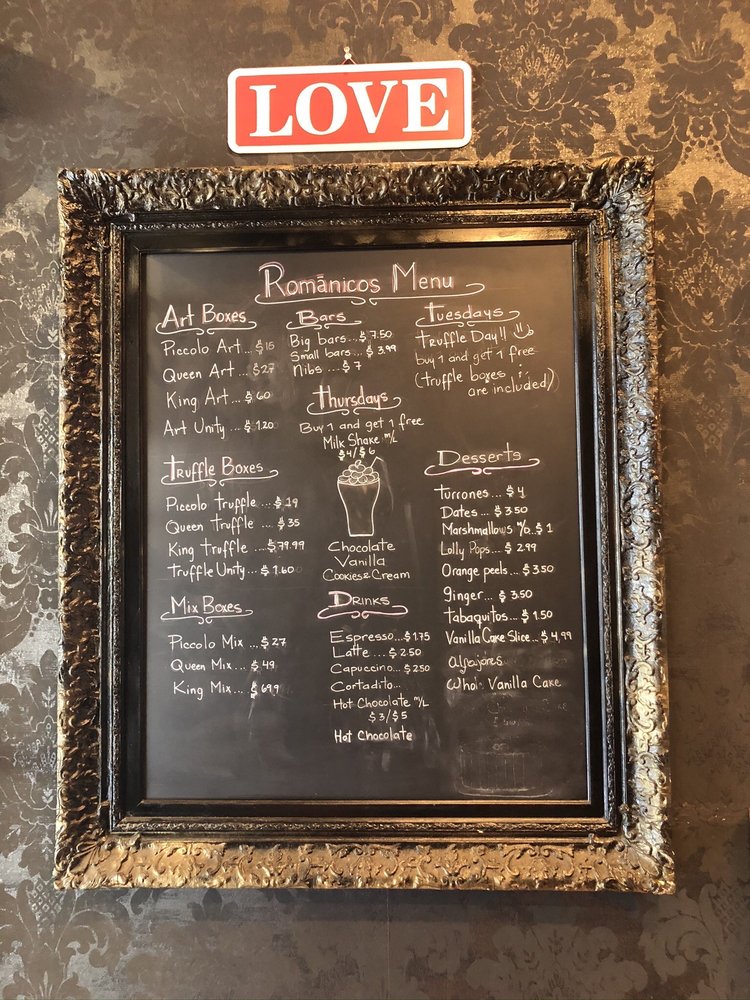 LOVE
Romānicos Menu
Art Boxes
Piccolo Art... $15
Queen Art... $27
King Art... $60
Art Unity... $1.20
Truffle Boxes
Piccolo truffle... $19
Queen truffle... $35
King truffle...$79.99
truffle Unity... $1.60
Mix Boxes
Piccolo Mix... $27
Queen Mix... $49
King Mix... $69.9
Bars
Big bars...$7.50
Small bars... $3.99
Nibs...$7
Thursdays
Buy 1 and get 1 free
Milk Shake M/L
$4/$6
Chocolate
Vanilla
Cookies & Cream
Drinks
Espresso...$1.75
Latte... $2.50
Capuccino...$250
Cortadito...
Hot Chocolate M/L
$3/$5
Hot Chocolate
Tuesdays
truffle Day!!
buy 1 and get 1 free
(truffle boxes
are included)
Desserts
turrones... $4
Dates... $3.50
Marshmallows %...$1
Lolly Pops... $2.99
Orange peels...$3.50
ginger... $3.50
tabaquitos...$1.50
Vanilla Cake Slice...$4,99
alfajores
Vanilla Cake